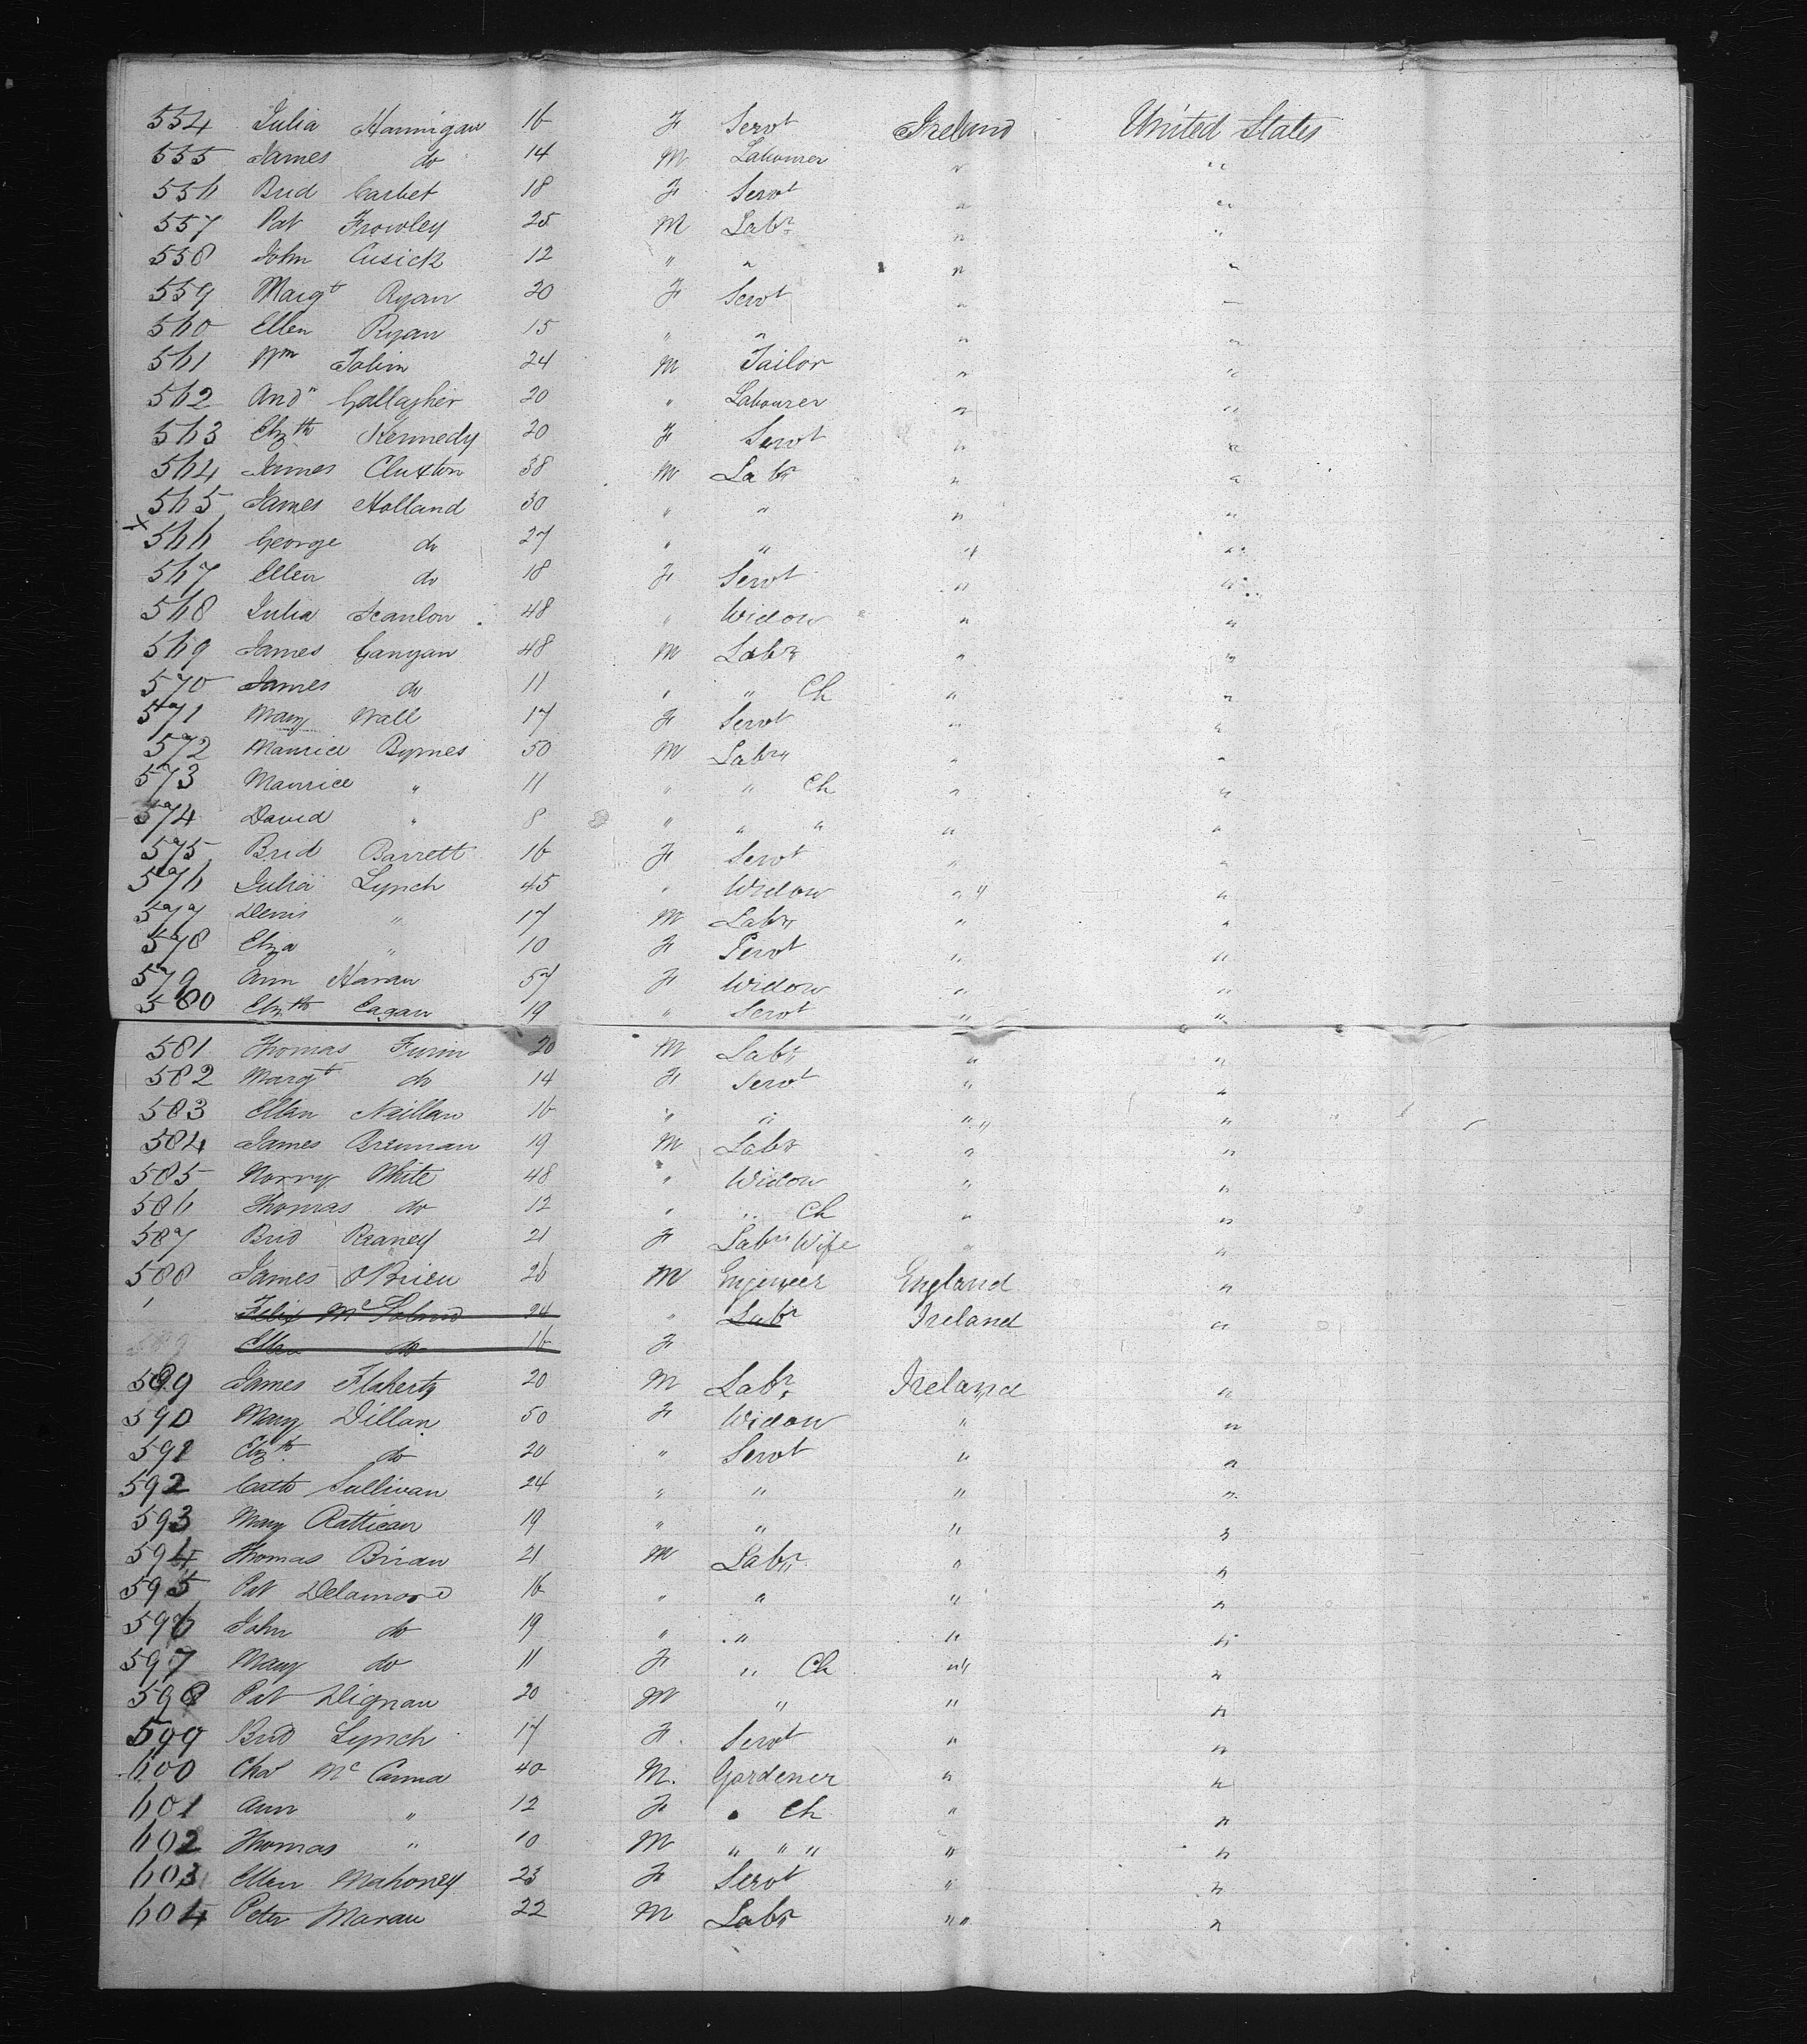 554 Julia Hannigan 16 F Servt Ireland United States
555 James do 14 M Labourer " "
556 Brid Corbet 18 F Servt " "
557 Pat Frowley 25 M Labr " "
558 John Cusick 12 " " " "
559 Margt Ryan 20 F Servt " "
560 Ellen Ryan 15 " " " "
561 Wm Tobin 24 M Tailor " "
562 Andw Gallagher 20 " Labourer " "
563 Elizth Kennedy 20 F Servt " "
564 James Cluxton 38 M Labr " "
565 James Holland 30 " " " "
x 566 George do 27 " " " "
567 Ellen do 18 F Servt " "
568 Julia Scanlon 48 " Widow " "
569 James Ganyan 48 M Labr " "
570 James do 11 " " Ch " "
571 Mary Wall 17 F Servt " "
572 Maurice Byrnes 50 M Labr " "
573 Maurice " 11 " " Ch " "
574 David " 8 " " " " "
575 Brid Barrett 16 F Servt " "
576 Julia Lynch 45 " Widow " "
577 Denis " 17 M Labr " "
578 Eliza " 10 F Servt " "
579 Ann Haran 57 F Widow " "
580 Elizth Eagan 19 " Servt " "
581 Thomas Furin 20 M Labr " "
582 Margt do 14 F Servt " "
583 Ellen Neillan 16 " " " "
584 James Brennan 19 M Labr " "
585 Norry White 48 " Widow " "
586 Thomas do 12 " " Ch " "
587 Brid Reaney 21 F Labrs Wife " "
588 James O'Brien 26 M Engineer England "
Felix Mc 24 " Labr Ireland "
Ellen do 16 F
589 James Flaherty 20 M Labr Ireland "
590 Mary Dillon 50 F Widow " "
591 Elizth do 20 " Servt " "
592 Cath Sullivan 24 " " " "
593 Mary Rattican 19 " " " "
594 Thomas Brian 21 M Labr " "
595 Pat Delamore 16 " " " "
596 John do 19 " " " "
597 Mary do 11 F " Ch " "
598 Pat Dignan 20 M " " "
599 Brid Lynch 17 F. Servt " "
600 Chas McCanna 40 M. Gardener " "
601 Ann " 12 F " Ch " "
602 Thomas " 10 M " " " " "
603 Ellen Mahoney 23 F Servt " "
604 Peter Maran 22 M Labr " "